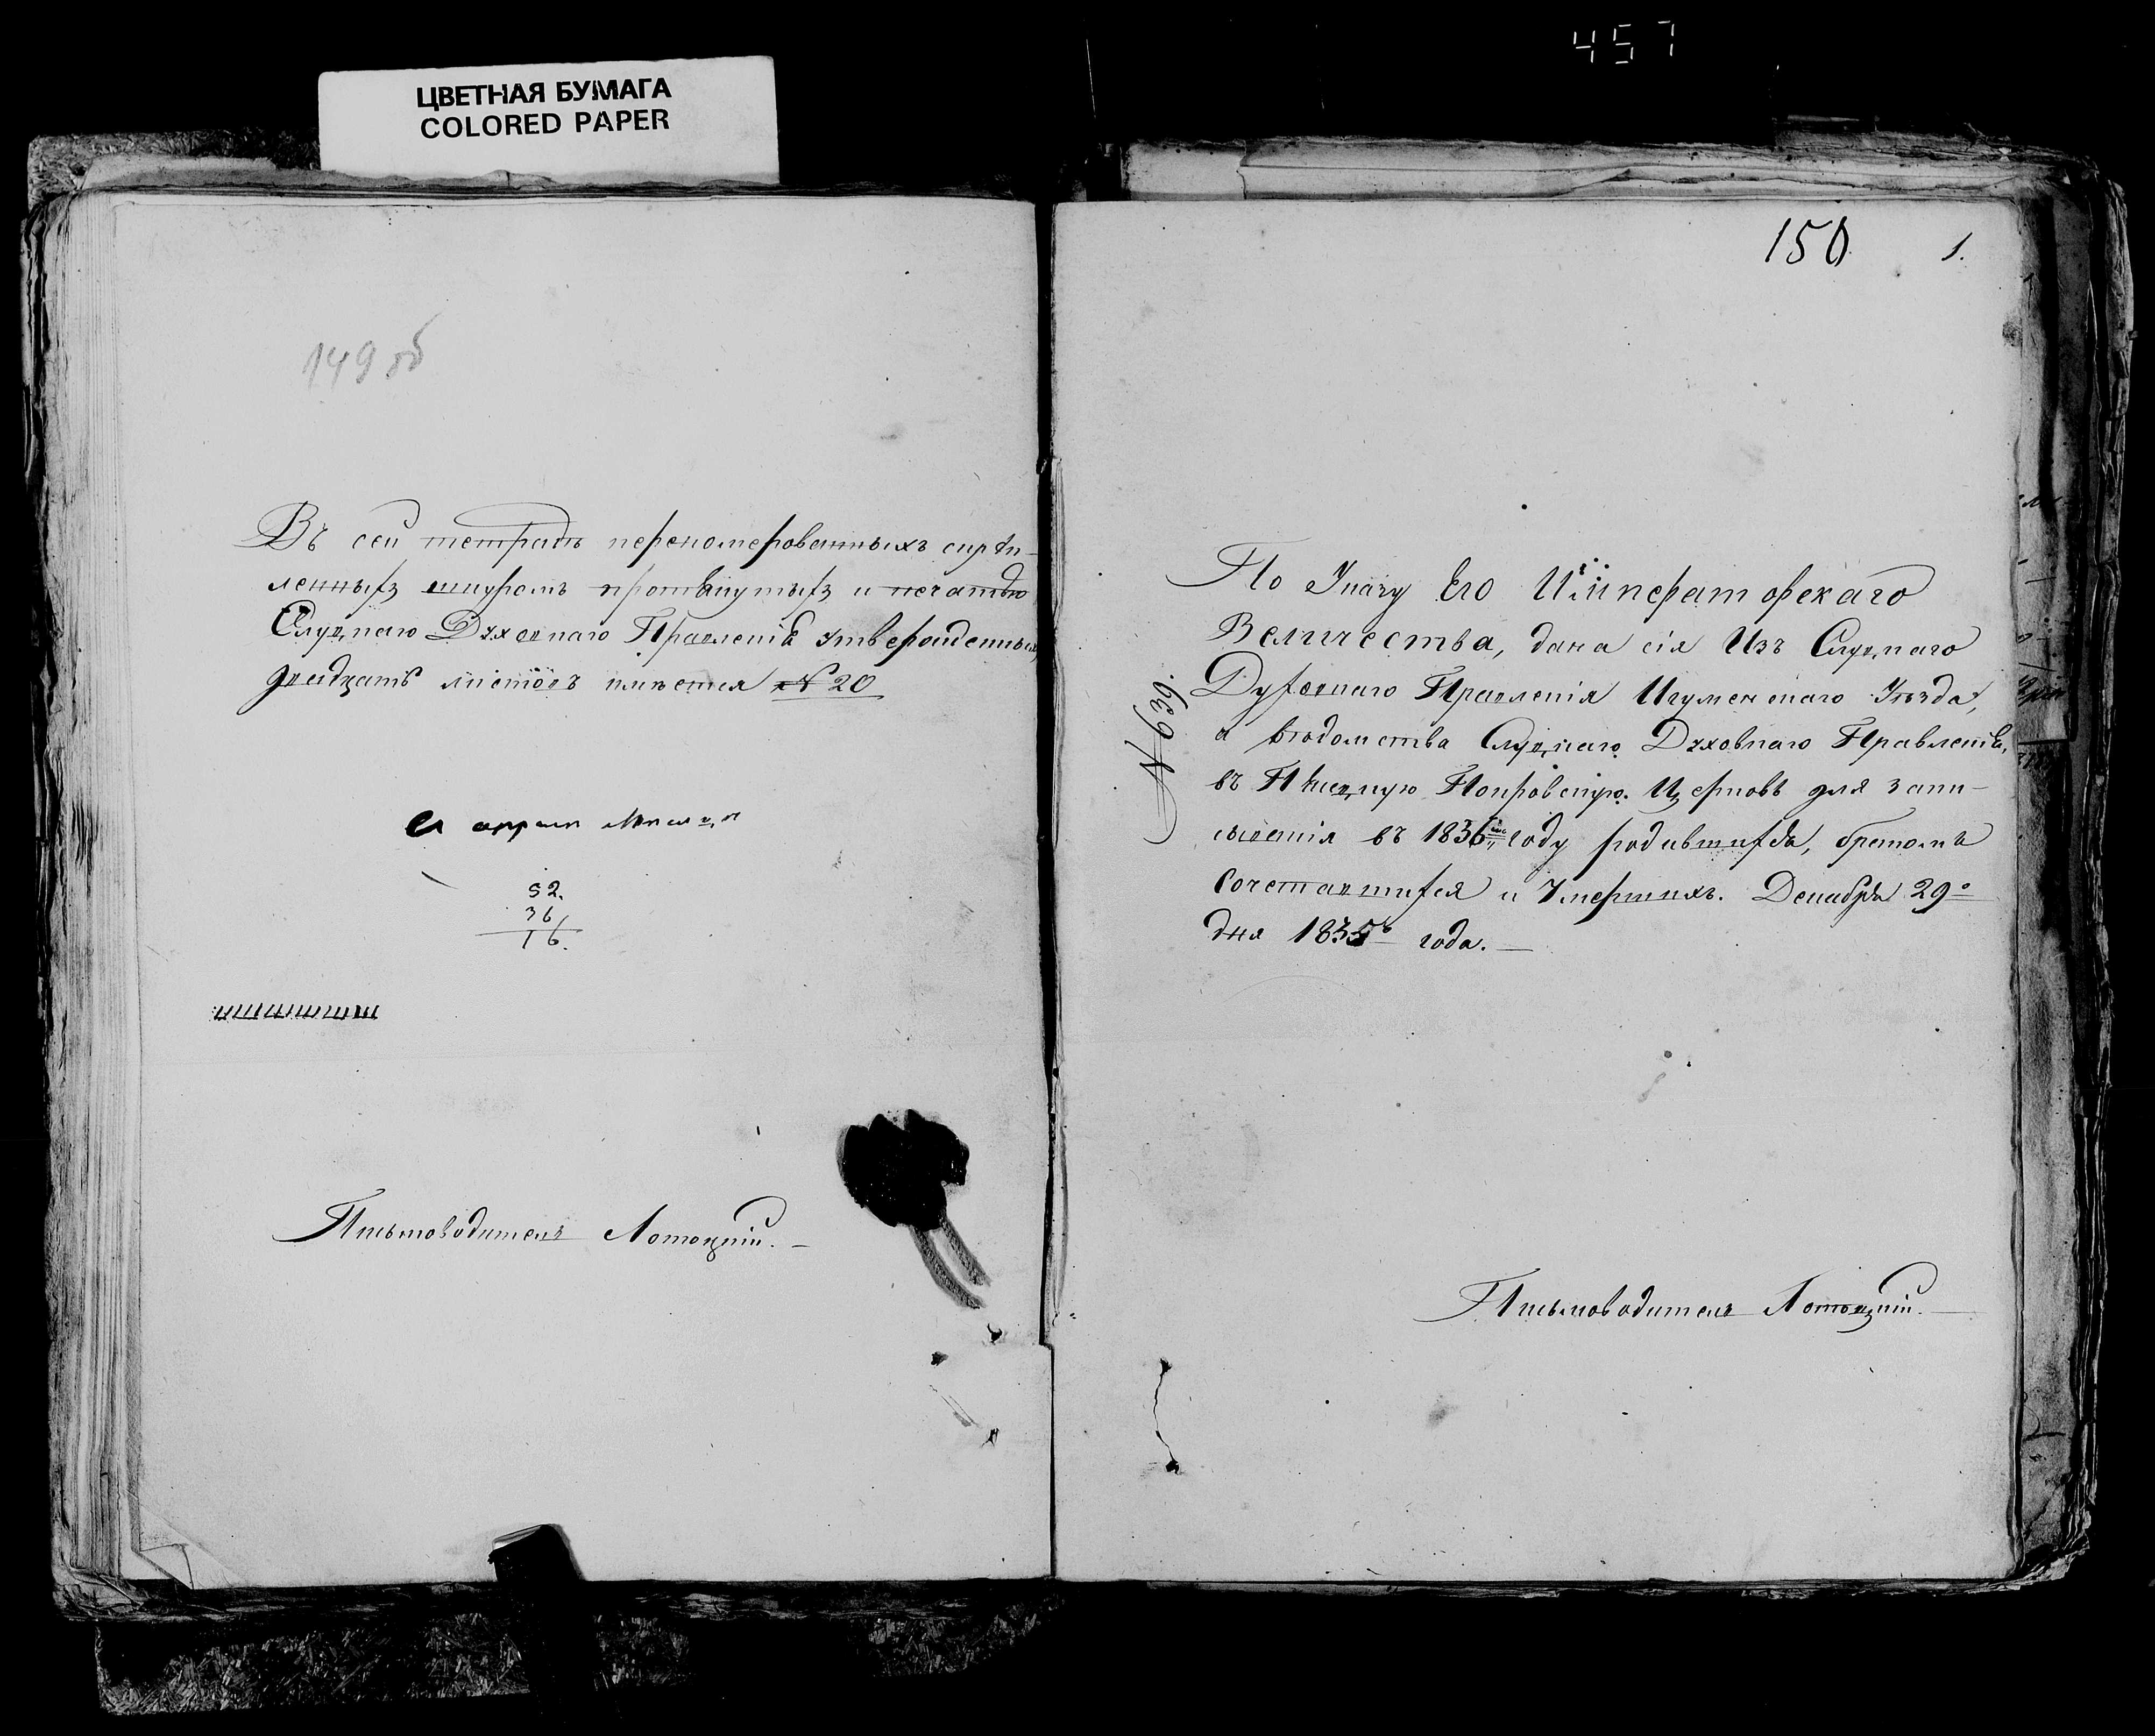 457
ЦВЕТНАЯ БУМАГА
COLORED PAPER
149 об
Въ сей тетради переномерованныхъ скрѣп-
ленныхъ шнуромъ протянутыхъ и печатью
Слуцкаго Духовнаго Правленія утвержденныхъ
двадцать листовъ имѣется № 20
52.
36
16.
Письмоводитель Лотоцкій.
150 1.
№ 639.
По Указу Его Императорскаго
Величества, дана сія Изъ Слуцкаго
Духовнаго Правленія Игуменскаго Уѣзда,
а вѣдомства Слуцкаго Духовнаго Правленія,
въ Покровскую Церковь для запи-
сыванія въ 1836мъ году родившихся, бракомъ
Сочетавшихся и Умершихъ. Декабря 29о
дня 1835о года.
Письмоводитель Лотоцкій.